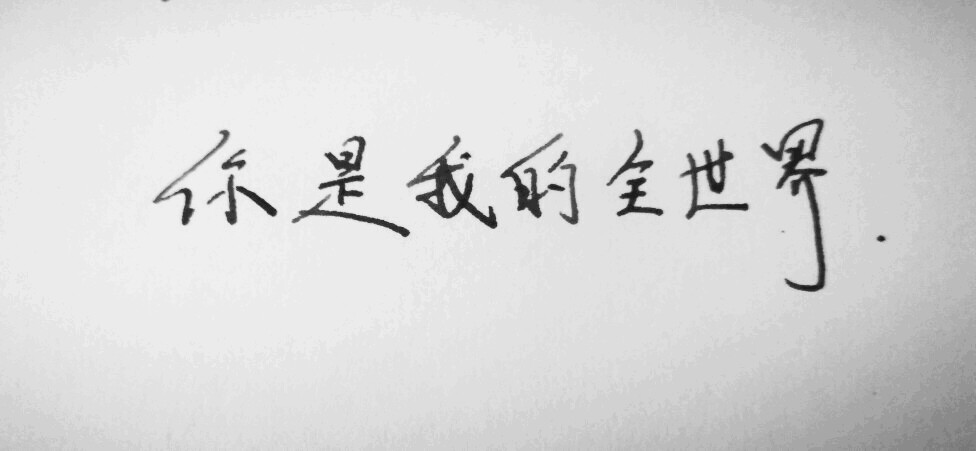 你是我的全世界.